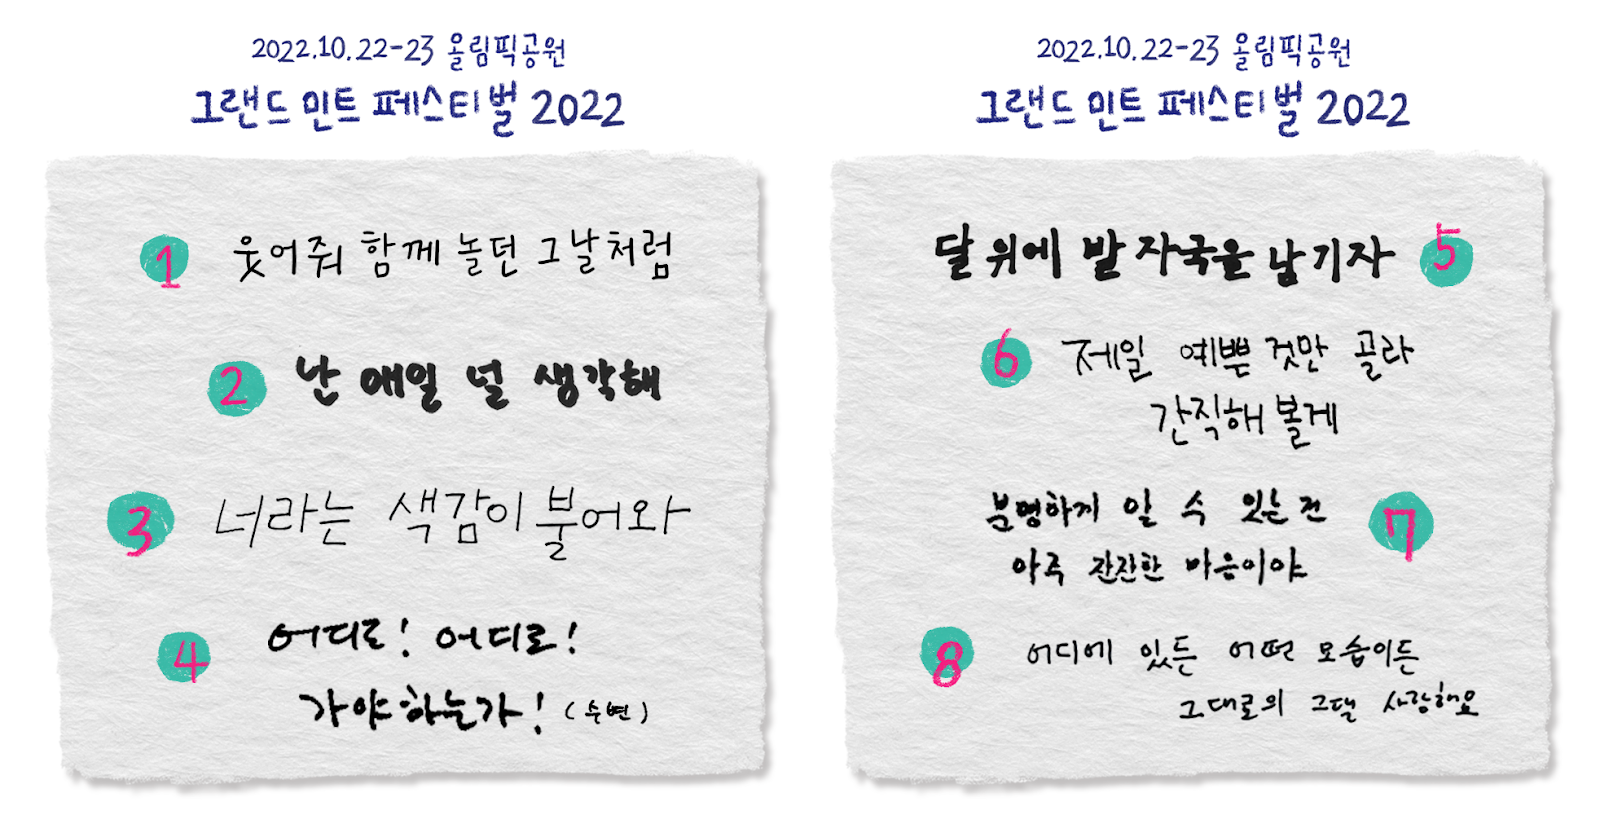 2022.10.22-23 올림픽공원
그랜드 민트 페스티벌 2022
1 웃어줘 함께 놀던 그날처럼
2 난 매일 널 생각해
3 너라는 색감이 불어와
4 어디로! 어디로!
가야 하는가! (수변)
2022.10.22-23 올림픽공원
그랜드 민트 페스티벌 2022
달 위에 발자국을 남기자 5
6 제일 예쁜 것만 골라
간직해 볼게
분명하게 알 수 있는 건 7
아주 잔잔한 마음이야
8 어디에 있든 어떤 모습이든
그대로의 그댈 사랑해요